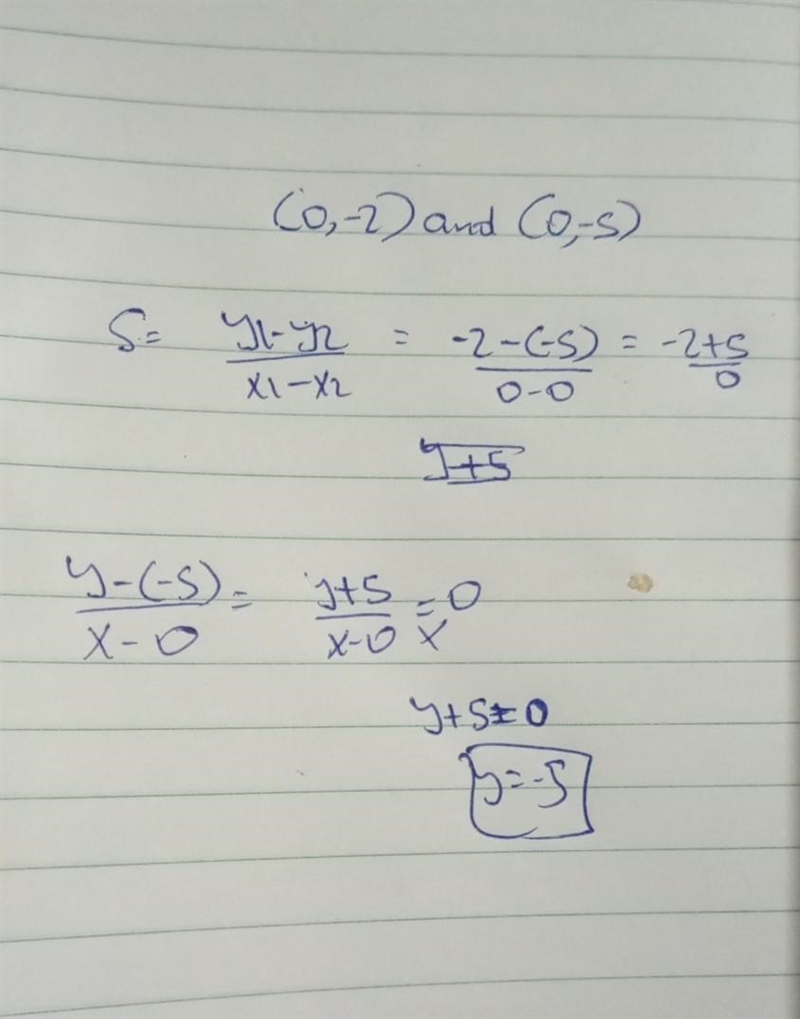 (0,-2) and (0,-5)
S= y1-y2/x1-x2 = -2-(-5)/0-0 = -2+5/0
y+5
y-(-5)/x-0 = y+5/x-0 = 0/x
y+5=0
y=-5